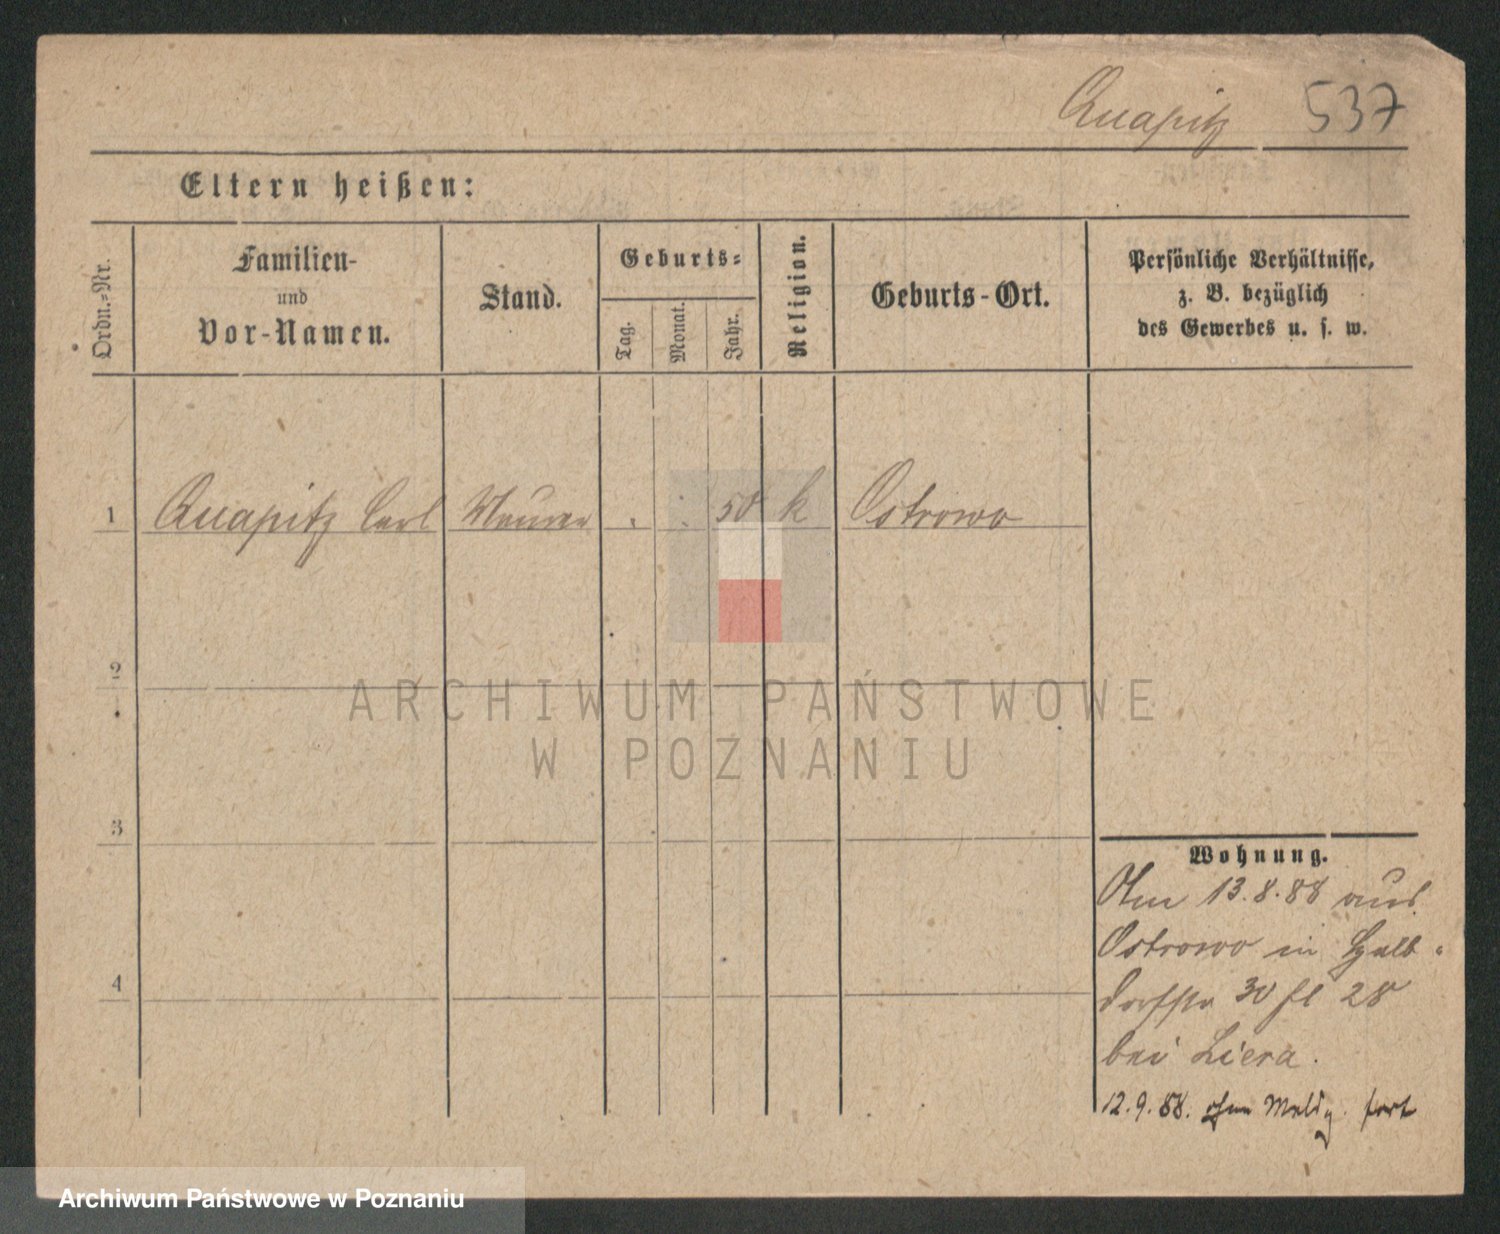 Quapitz 537
Eltern heißen:
Ordn.-Nr.
Familien-
und
Vor-Namen.
Stand.
Geburts-
Tag.
Monat.
Jahr.
Religion.
Geburts-Ort.
Persönliche Verhältnisse,
z. B. bezüglich
des Gewerbes u. s. w.
1 Quapitz Carl Maurer 58 k Ostrowo
2
ARCHIWUM PAŃSTWOWE
W POZNANIU
3
Wohnung.
13.8.88 aus
Ostrowo in Halb-
dorfstr 30 fl 28
bei Liera.
4
12.9.88. ohne Meldg. fort
Archiwum Państwowe w Poznaniu